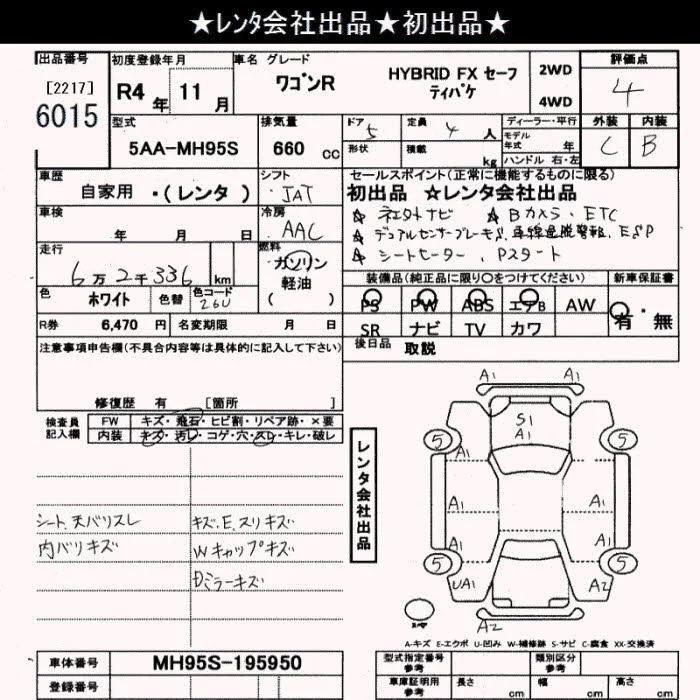 ★レンタ会社出品★初出品★
出品番号
[2217]
6015
初度登録年月
R4年 11月
車名 グレード
ワゴンR
HYBRID FX セーフ
ティパケ
2WD
4WD
評価点
4
型式
5AA-MH95S
排気量
660 cc
ドア 5
形状
定員 4 人
積載 kg
ディーラー・平行
モデル
年式 年
ハンドル 右・左
外装
C
内装
B
車歴
自家用 ・(レンタ)
シフト
IAT
セールスポイント(正常に機能するものに限る)
初出品 ☆レンタ会社出品
☆ ネエカトナビ ☆ Bカメラ・ETC
☆ デュアルセンサーブレーキS,車線逸脱警報, ESP
☆ シートヒーター, Pスタート
車検
年 月 日
冷房
AAC
走行
6万2千336 km
燃料
ガソリン
軽油
( )
装備品(純正品に限り○をつけてください)
新車保証書
PS PW ABS エアB AW
有・無
SR ナビ TV カワ
色
ホワイト
色替
色コード
26U
R券 6,470 円
名変期限 月 日
後日品 取説
注意事項申告欄(不具合内容等は具体的に記入して下さい)
修復歴 有 [箇所 ]
検査員
記入欄
FW キズ・飛石・ヒビ割・リペア跡・×要
内装 キズ・汚レ・コゲ・穴・スレ・キレ・破レ
シート、天バリスレ
内バリキズ
キズ.E.スリキズ
Wキャップキズ
Dミラーキズ
レンタ会社出品
A1 A1
S1
A1
5 5
A1
A1 A1
A1 A1
5 5
UA1 A2
A2
スペア
A-キズ E-エクボ U-凹み W-補修跡 S-サビ C-腐食 XX-交換済
車体番号 MH95S-195950
登録番号
型式指定番号
参考
類別区分
参考
車庫証明用
参考
長さ cm
幅 cm
高さ cm